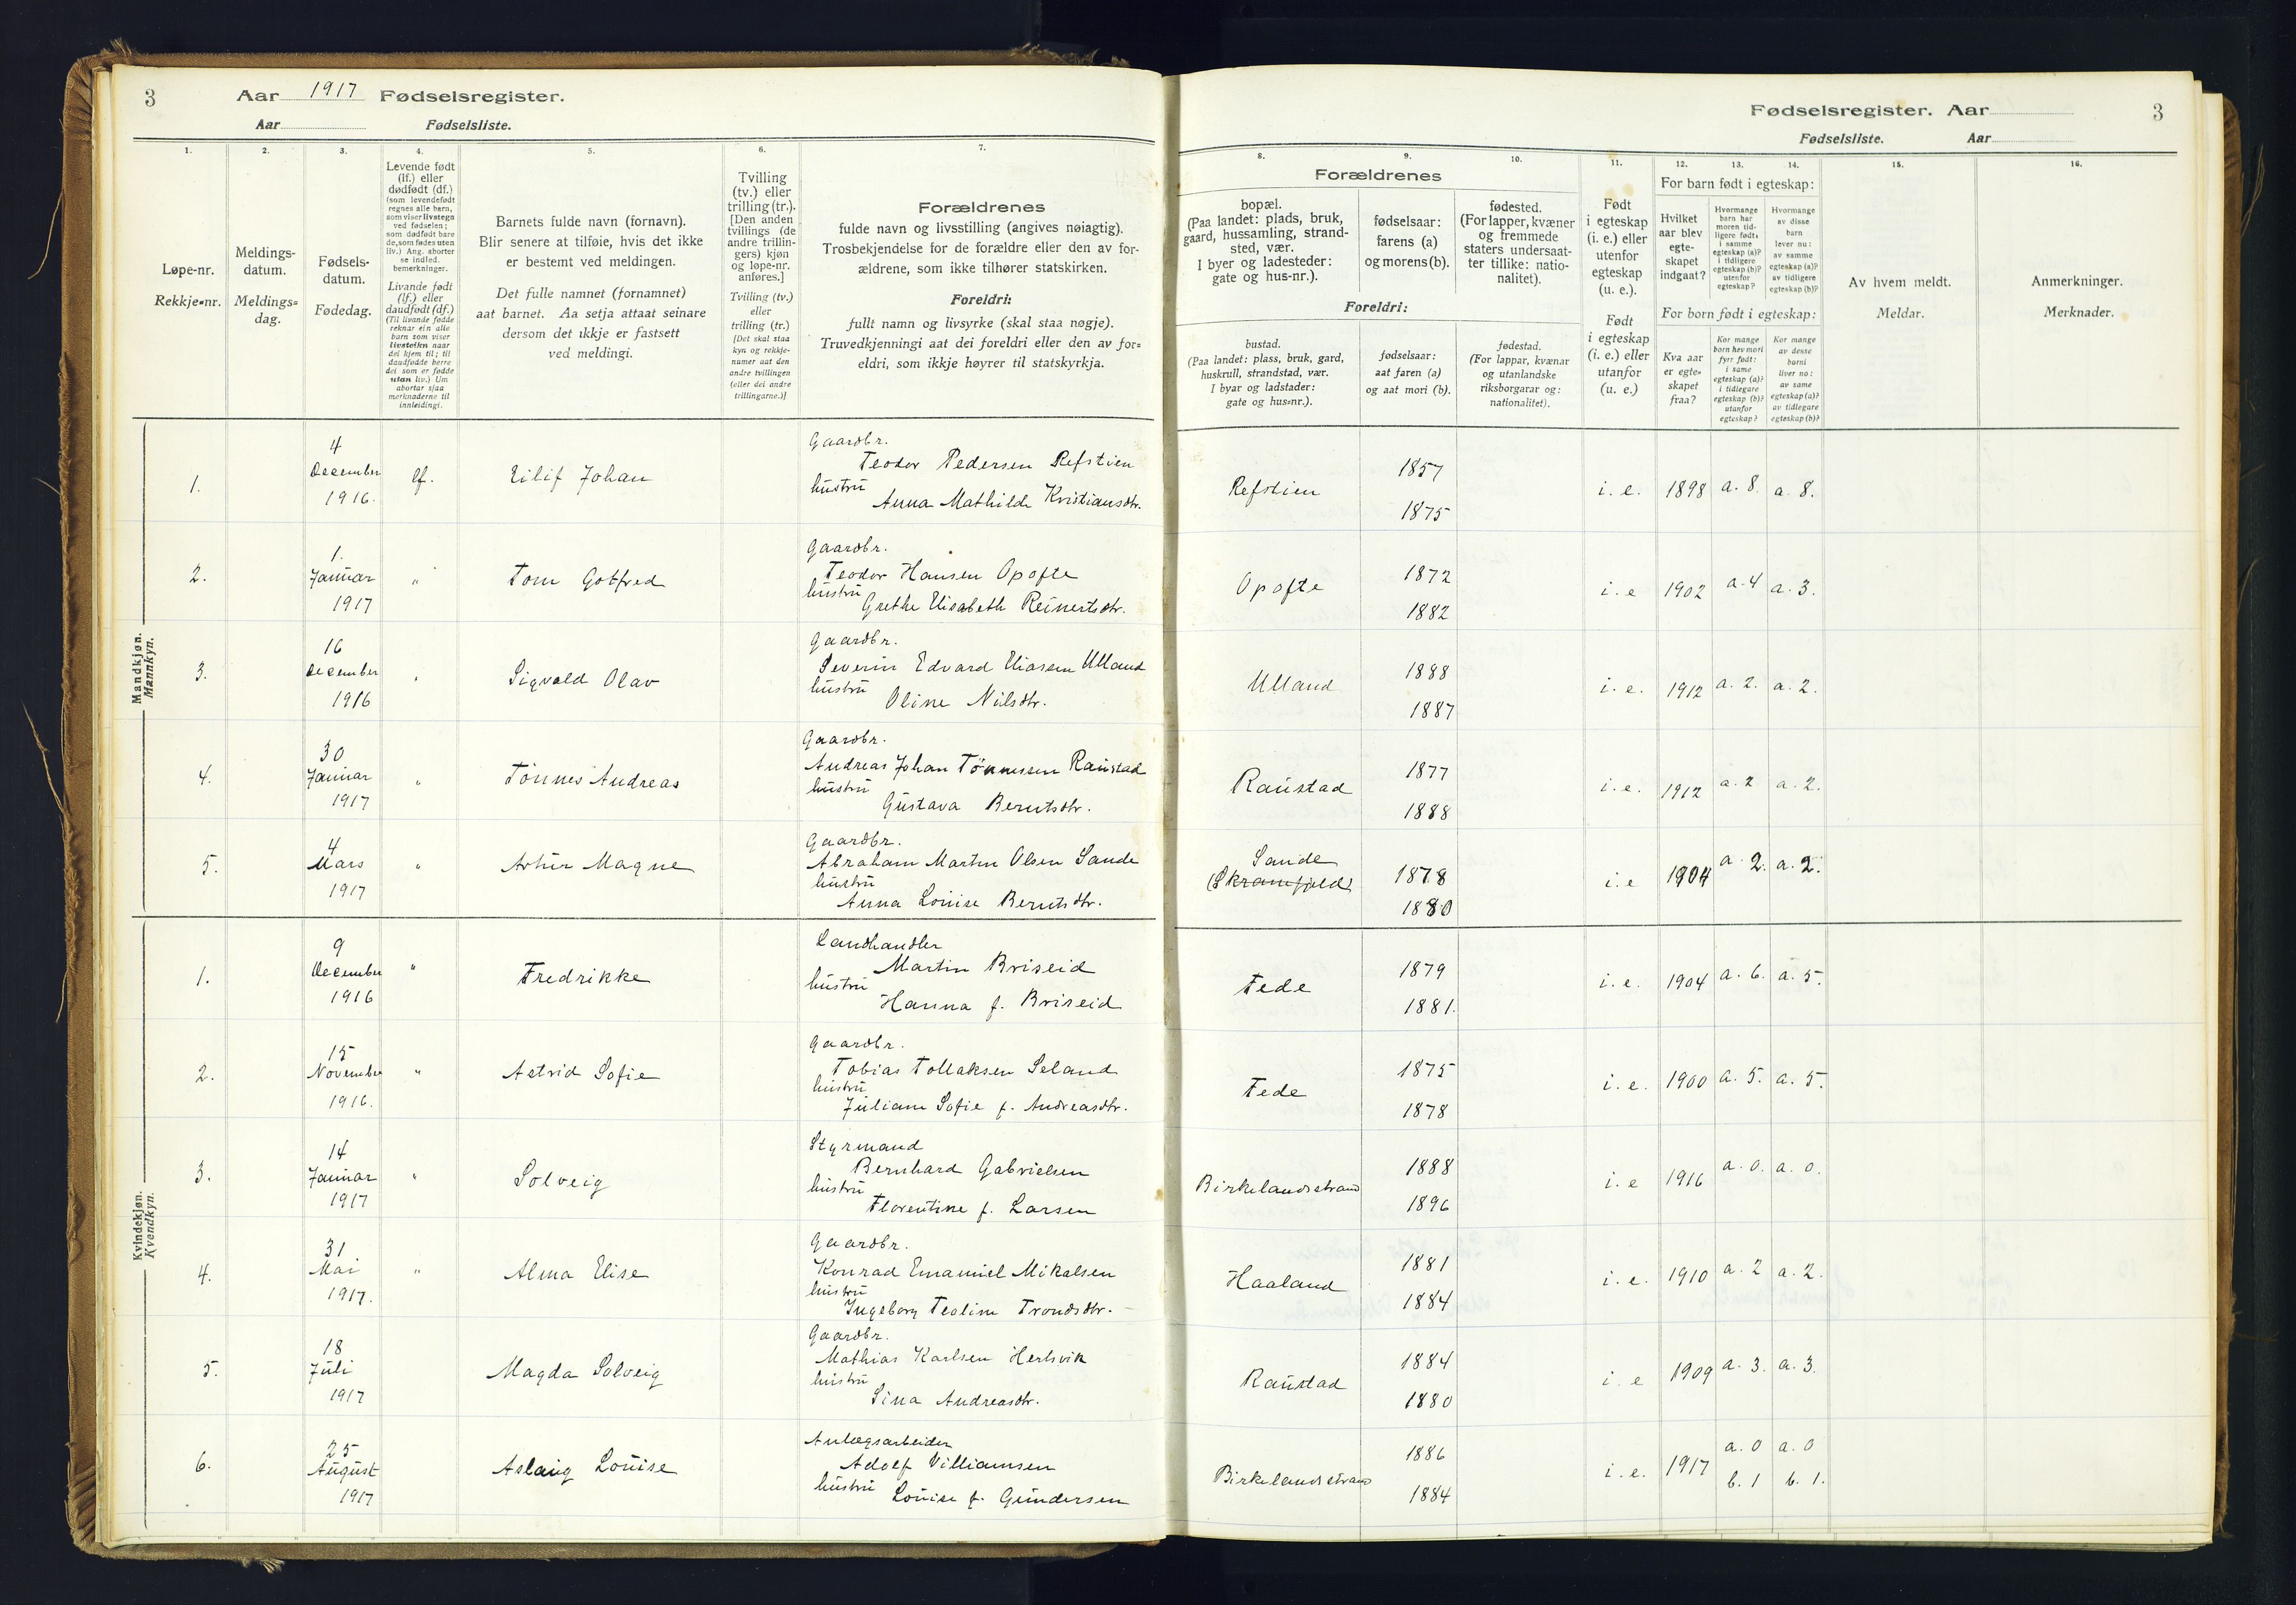 3 Aar 1917 Fødselsregister.
Aar Fødselsliste.
1.
2.
3.
4.
5.
6.
7.
Løpe-nr.
Rekkje=nr.
Meldings-
datum.
Meldings=
dag.
Fødsels-
datum.
Fødedag.
Levende født
(lf.) eller
dødfødt (df.)
(som levendefødt
regnes alle barn,
som viser livstegn
ved fødselen;
som dødfødt bare
de, som fødes uten
liv.) Ang. aborter
se indled.
bemerkninger.
Livande født
(lf.) eller
daudfødt (df.)
(Til livande fødde
reknar ein alle
barn som viser
livsteikn naar
dei kjem til; til
daudfødde berre
dei som er fødde
utan liv.) Um
abortar sjaa
merknaderne til
innleidingi.
Barnets fulde navn (fornavn).
Blir senere at tilføie, hvis det ikke
er bestemt ved meldingen.
Det fulle namnet (fornamnet)
aat barnet. Aa setja attaat seinare
dersom det ikkje er fastsett
ved meldingi.
Tvilling
(tv.) eller
trilling (tr.).
[Den anden
tvillings (de
andre trillin-
gers) kjøn
og løpe-nr.
anføres.]
Tvilling (tv.)
eller
trilling (tr.)
[Det skal staa
kyn og rekkje-
numer aat den
andre tvillingen
(eller dei andre
trillingarne.)]
Forældrenes
fulde navn og livsstilling (angives nøiagtig).
Trosbekjendelse for de forældre eller den av for-
ældrene, som ikke tilhører statskirken.
Foreldri:
fullt namn og livsyrke (skal staa nøgje).
Truvedkjenningi aat dei foreldri eller den av for=
eldri, som ikkje høyrer til statskyrkja.
Mandkjøn.
Mannkyn.
4
1. December lf. Eilif Johan
1916.
Gaardbr.
Teodor Pedersen Refstien
hustru
Anna Mathilde Kristiansdtr.
1.
2. Januar " Tom Gotfred
1917
Gaardbr.
Teodor Hansen Opofte
hustru
Grethe Elisabeth Reinertsdtr.
16
3. December " Sigvald Olav
1916
Gaardbr.
Severin Edvard Eliasen Ulland
hustru
Oline Nilsdtr.
30
4. Januar " Tönnes Andreas
1917
Gaardbr.
Andreas Johan Tönnesen Raustad
hustru
Gustava Berntsdtr.
4
5. Mars " Artur Magne
1917
Gaardbr.
Abraham Martin Olsen Sande
hustru
Anna Louise Berntsdtr.
Kvindekjøn.
Kvendkyn.
9
1. December " Fredrikke
1916
Landhandler
Martin Briseid
hustru
Hanna f. Briseid
15
2. November " Astrid Sofie
1916.
Gaardbr.
Tobias Tollaksen Seland
hustru
Juliane Sofie f. Andreasdtr.
14
3. Januar " Solveig
1917
Styrmand
Bernhard Gabrielsen
hustru
Florentine f. Larsen
31
4. Mai " Alma Elise
1917.
Gaardbr.
Konrad Emanuel Mikalsen
hustru
Ingeborg Teoline Trondsdtr.
18
5. Juli Magda Solveig
1917
Gaardbr.
Mathias Karlsen Hertsvik
hustru
Sina Andreasdtr.
25
6. August Aslaug Louise
1917
Anlægsarbeider
Adolf Villiamsen
hustru
Louise f. Gundersen
Fødselsregister. Aar 3
Fødselsliste. Aar
8.
9.
10.
11.
12.
13.
14.
15.
16.
Forældrenes
bopæl.
(Paa landet: plads, bruk,
gaard, hussamling, strand-
sted, vær.
I byer og ladesteder:
gate og hus-nr.).
fødselsaar:
farens (a)
og morens (b).
fødested.
(For lapper, kvæner
og fremmede
staters undersaat-
ter tillike: natio-
nalitet).
Foreldri:
bustad.
(Paa landet: plass, bruk, gard,
huskrull, strandstad, vær.
I byar og ladstader:
gate og hus=nr.).
fødselsaar:
aat faren (a)
og aat mori (b).
fødestad.
(For lappar, kvænar
og utanlandske
riksborgarar og:
nationalitet).
Født
i egteskap
(i. e.) eller
utenfor
egteskap
(u. e.).
Født
i egteskap
(i. e.) eller
utanfor
(u. e.).
For barn født i egteskap:
Hvilket
aar blev
egte-
skapet
indgaat?
Hvormange
barn har
moren tid-
ligere født:
i samme
egteskap (a)?
i tidligere
egteskap (b)?
utenfor
egteskap?
Hvormange
av disse
barn
lever nu:
av samme
egteskap (a)?
av tidligere
egteskap (b)?
For born født i egteskap:
Kva aar
er egte=
skapet
fraa?
Kor mange
born hev mori
fyrr født:
i same
egteskap (a)?
i tidlegare
egteskap (b)?
utanfor
egteskap?
Kor mange
av desse
borni
liver no:
av same
egteskap (a)?
av tidlegare
egteskap (b)?
Av hvem meldt.
Meldar.
Anmerkninger.
Merknader.
1857
Refstien i. e. 1898 a. 8. a. 8.
1875
1872
Opofte i. e 1902 a. 4 a. 3.
1882
1888
Ulland i. e. 1912 a. 2. a. 2.
1887
1877
Raustad i. e. 1912 a. 2 a. 2.
1888
Sande
(Skranefjeld) 1878 i. e 1904 a. 2. a. 2.
1880
1879
Fede i. e. 1904 a. 6. a. 5.
1881.
1875
Fede i. e. 1900 a. 5. a. 5.
1878
1888
Birkelandsstrand i. e 1916 a. 0. a. 0.
1896
1881
Haaland i. e. 1910 a. 2 a. 2.
1884
1884
Raustad i. e 1909 a. 3. a. 3.
1880
1886 a. 0 a. 0
Birkelandsstrand i. e. 1917 b. 1 b. 1.
1884